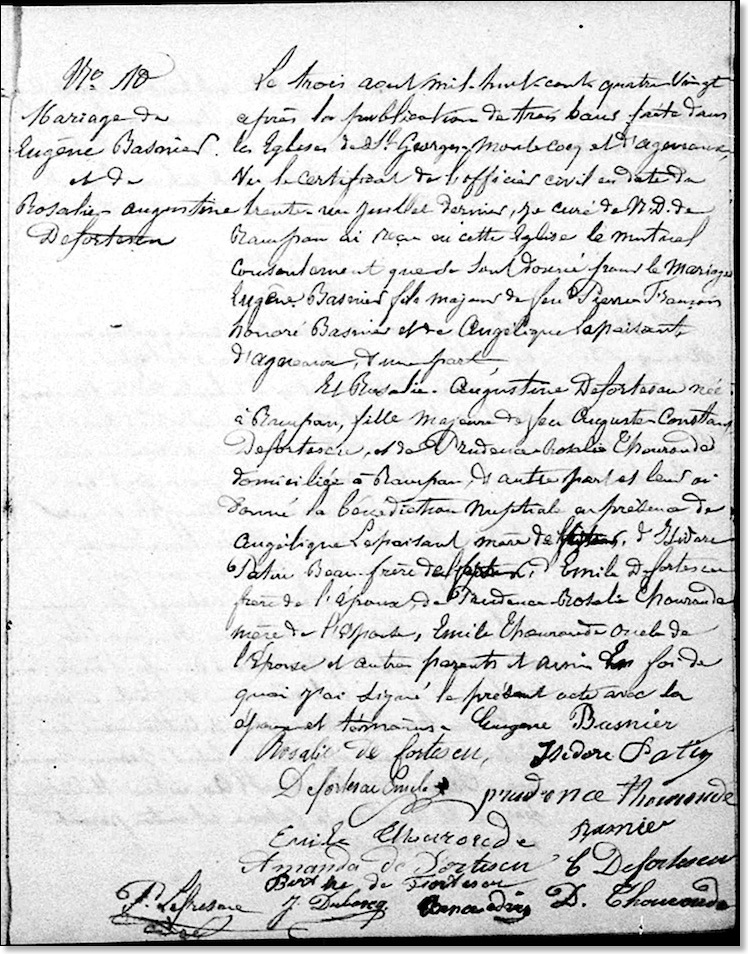 No 10
Mariage de
Eugène Basnier
et de
Rosalie-augustine
Defortescu
Le trois août mil-huit-cent quatre vingt
après la publication de trois bans faite dans
les Eglises de St Georges-Montcocq et d'agneaux,
Vu le certificat de l'officier civil en date du
trente-un juillet dernier, je curé de N.D. de
Rampan ai reçu en cette Eglise le mutuel
consentement que se sont donné pour le Mariage
Eugène Basnier fils majeur de feu Pierre François
honoré Basnier et de Angélique Lepaisant,
d'agneaux, d'une part,
Et Rosalie-Augustine Defortescu née
à Rampan, fille majeure de feu Auguste-Constant
Defortescu, et de Prudence-Rosalie Thouroude
domiciliée à Rampan, d'autre part et leur ai
donné la bénédiction Nuptiale en présence de
Angélique Lepaisant mère de d'Isidore
Patin Beau-frère de d'Emile Defortescu
frère de l'époux, de Prudence-Rosalie Thouroude
mère de l'Epouse, Emile Thouroude oncle de
l'Epouse et autres parents et amis En foi de
quoi j'ai signé le présent acte avec les
époux et témoins. Eugène Basnier
Rosalie de fortescu, Isidore Patin
Defortescu Emile prudence thouroude
Emile Thouroude Basnier
Amanda de Fortescu C Defortescu
Berthe de Fortescu
P. Lefresne J. Dubosq D. Thouroude